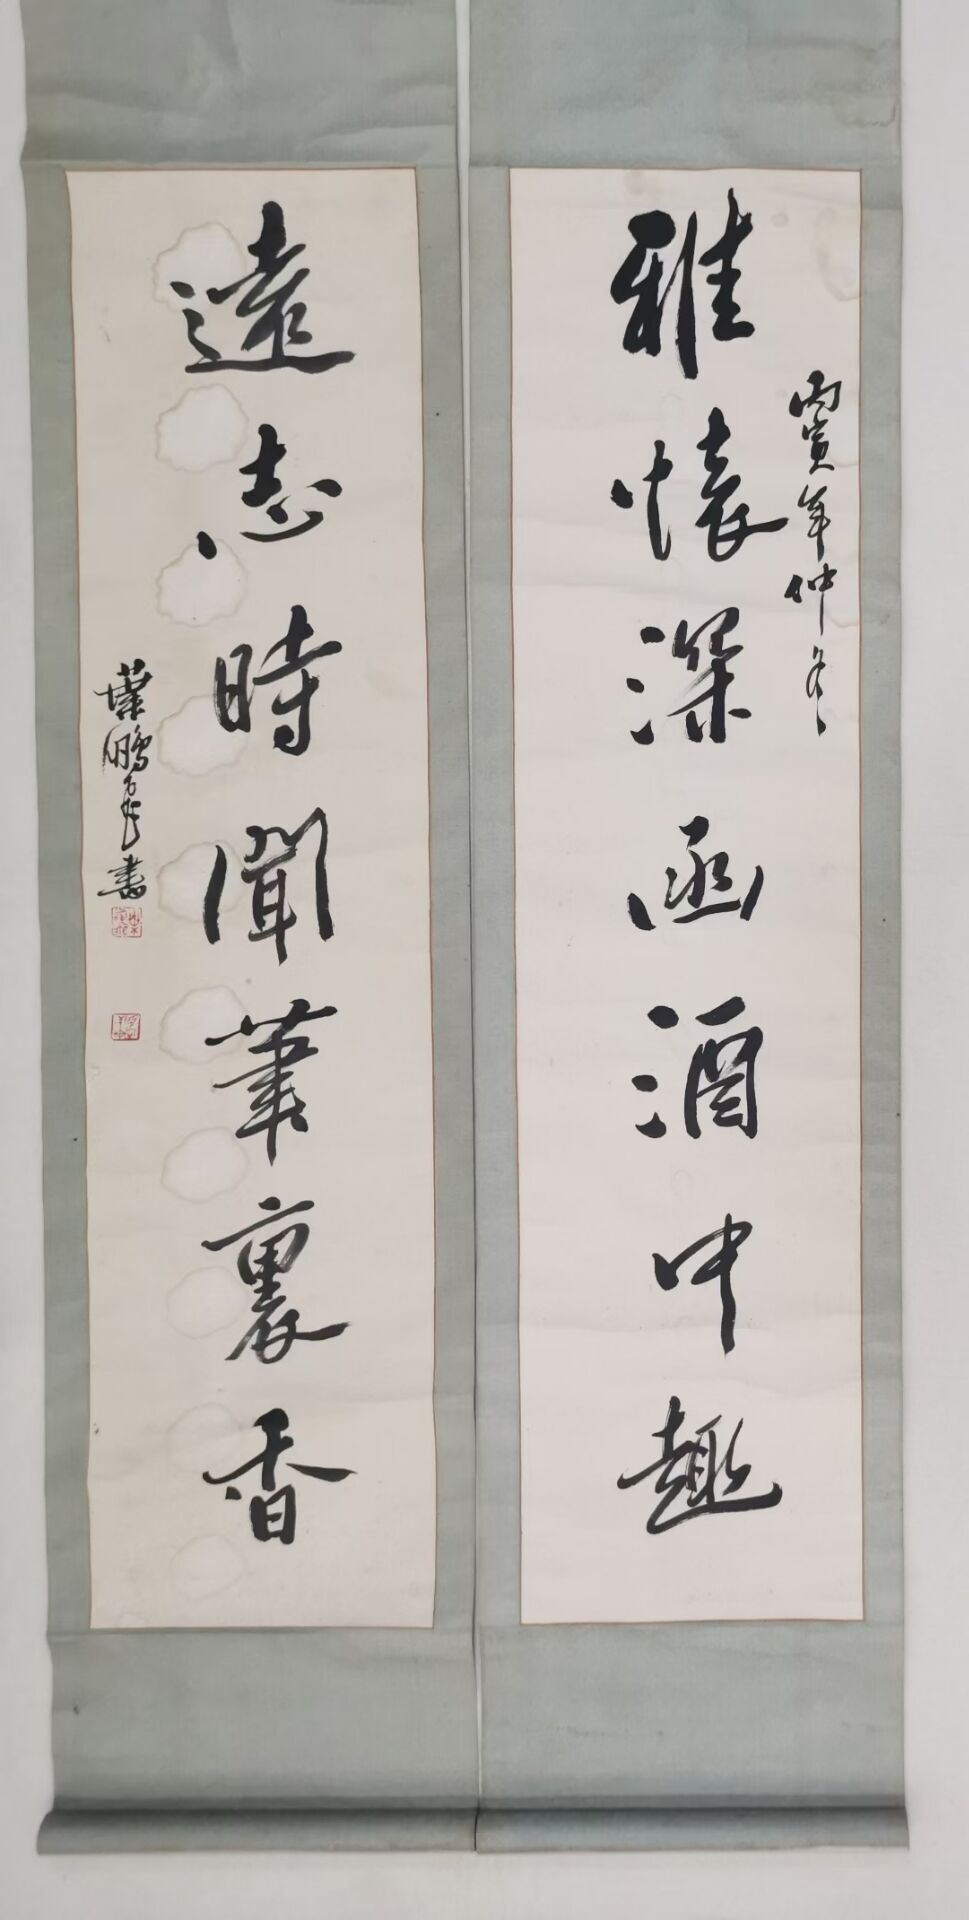 丙寅年仲冬
雅懷深函酒中趣
遠志時聞筆裏香
葉鵬飛書